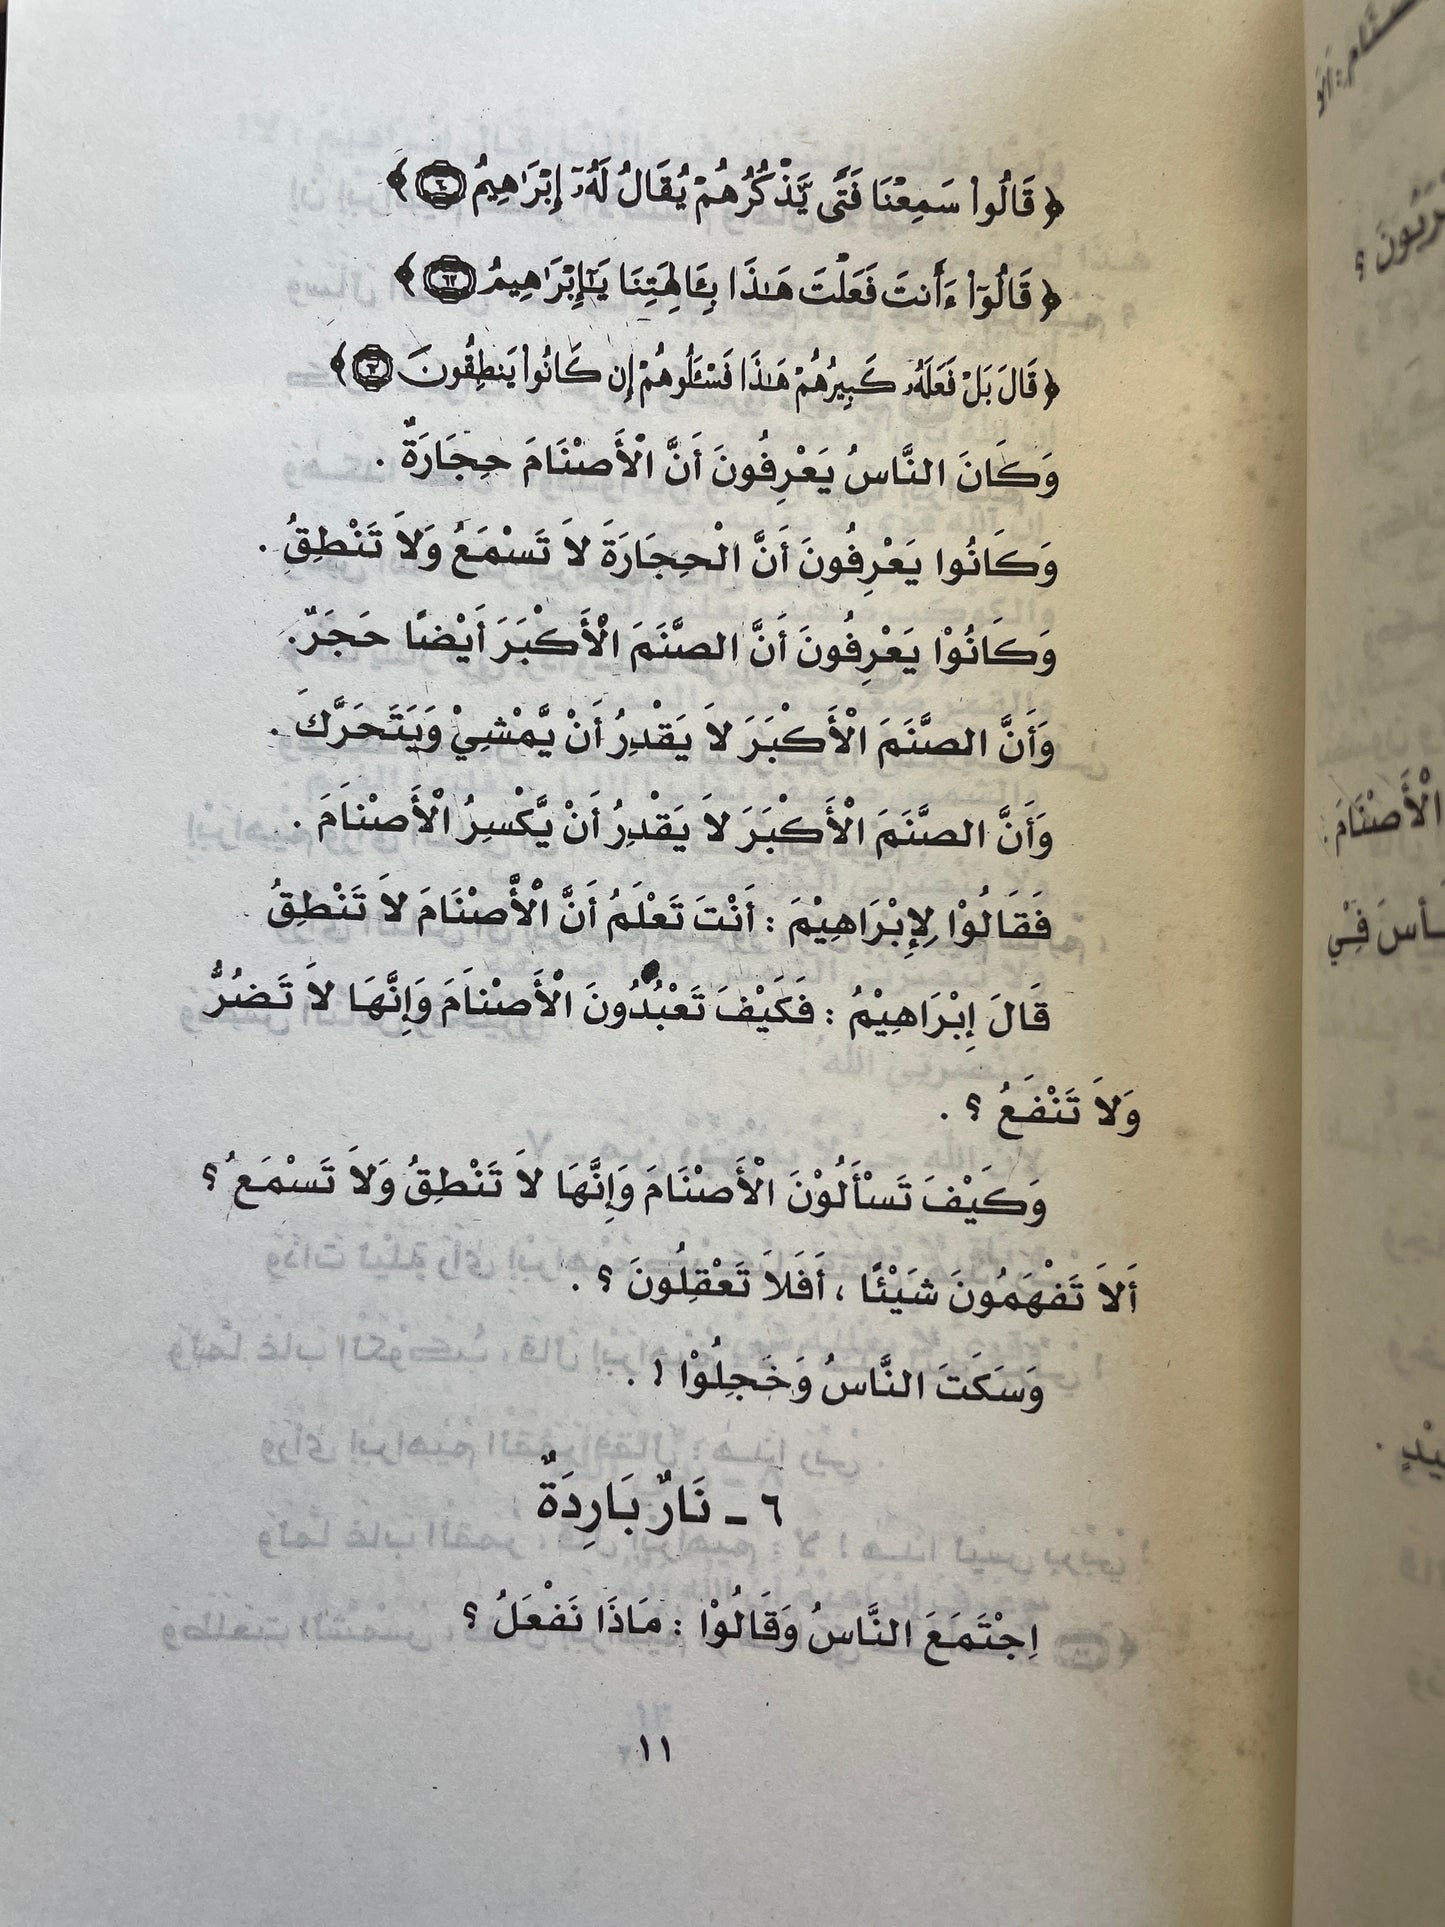 ﴿ قَالُوا۟ سَمِعْنَا فَتًى يَذْكُرُهُمْ يُقَالُ لَهُۥٓ إِبْرَٰهِيمُ ﴾
﴿ قَالُوٓا۟ ءَأَنتَ فَعَلْتَ هَـٰذَا بِـَٔالِهَتِنَا يَـٰٓإِبْرَٰهِيمُ ٦٢ ﴾
﴿ قَالَ بَلْ فَعَلَهُۥ كَبِيرُهُمْ هَـٰذَا فَسْـَٔلُوهُمْ إِن كَانُوا۟ يَنطِقُونَ ﴾
وَكَانَ النَّاسُ يَعْرِفُونَ أَنَّ الْأَصْنَامَ حِجَارَةٌ .
وَكَانُوا يَعْرِفُونَ أَنَّ الْحِجَارَةَ لاَ تَسْمَعُ وَلاَ تَنْطِقُ .
وَكَانُوْا يَعْرِفُونَ أَنَّ الصَّنَمَ الْأَكْبَرَ أَيْضًا حَجَرٌ.
وَأَنَّ الصَّنَمَ الْأَكْبَرَ لاَ يَقْدِرُ أَنْ يَّمْشِيْ وَيَتَحَرَّكَ .
وَأَنَّ الصَّنَمَ الْأَكْبَرَ لاَ يَقْدِرُ أَنْ يَّكْسِرُ الْأَصْنَامَ .
فَقَالُوْا لِإِبْرَاهِيْمَ : أَنْتَ تَعْلَمُ أَنَّ الْأَصْنَامَ لاَ تَنْطِقُ
قَالَ إِبْرَاهِيْمُ : فَكَيْفَ تَعْبُدُونَ الْأَصْنَامَ وَإِنَّهَا لاَ تَضُرُّ
وَلاَ تَنْفَعُ ؟ .
وَكَيْفَ تَسْأَلُوْنَ الْأَصْنَامَ وَإِنَّهَا لاَ تَنْطِقُ وَلاَ تَسْمَعُ ؟
أَلاَ تَفْهَمُونَ شَيْئًا ، أَفَلاَ تَعْقِلُونَ ؟ .
وَسَكَتَ النَّاسُ وَخَجِلُوْا ! .
٦ ـ نَارٌ بَارِدَةٌ
اِجْتَمَعَ النَّاسُ وَقَالُوْا : مَاذَا نَفْعَلُ ؟
١١
الْأَصْنَامَ .